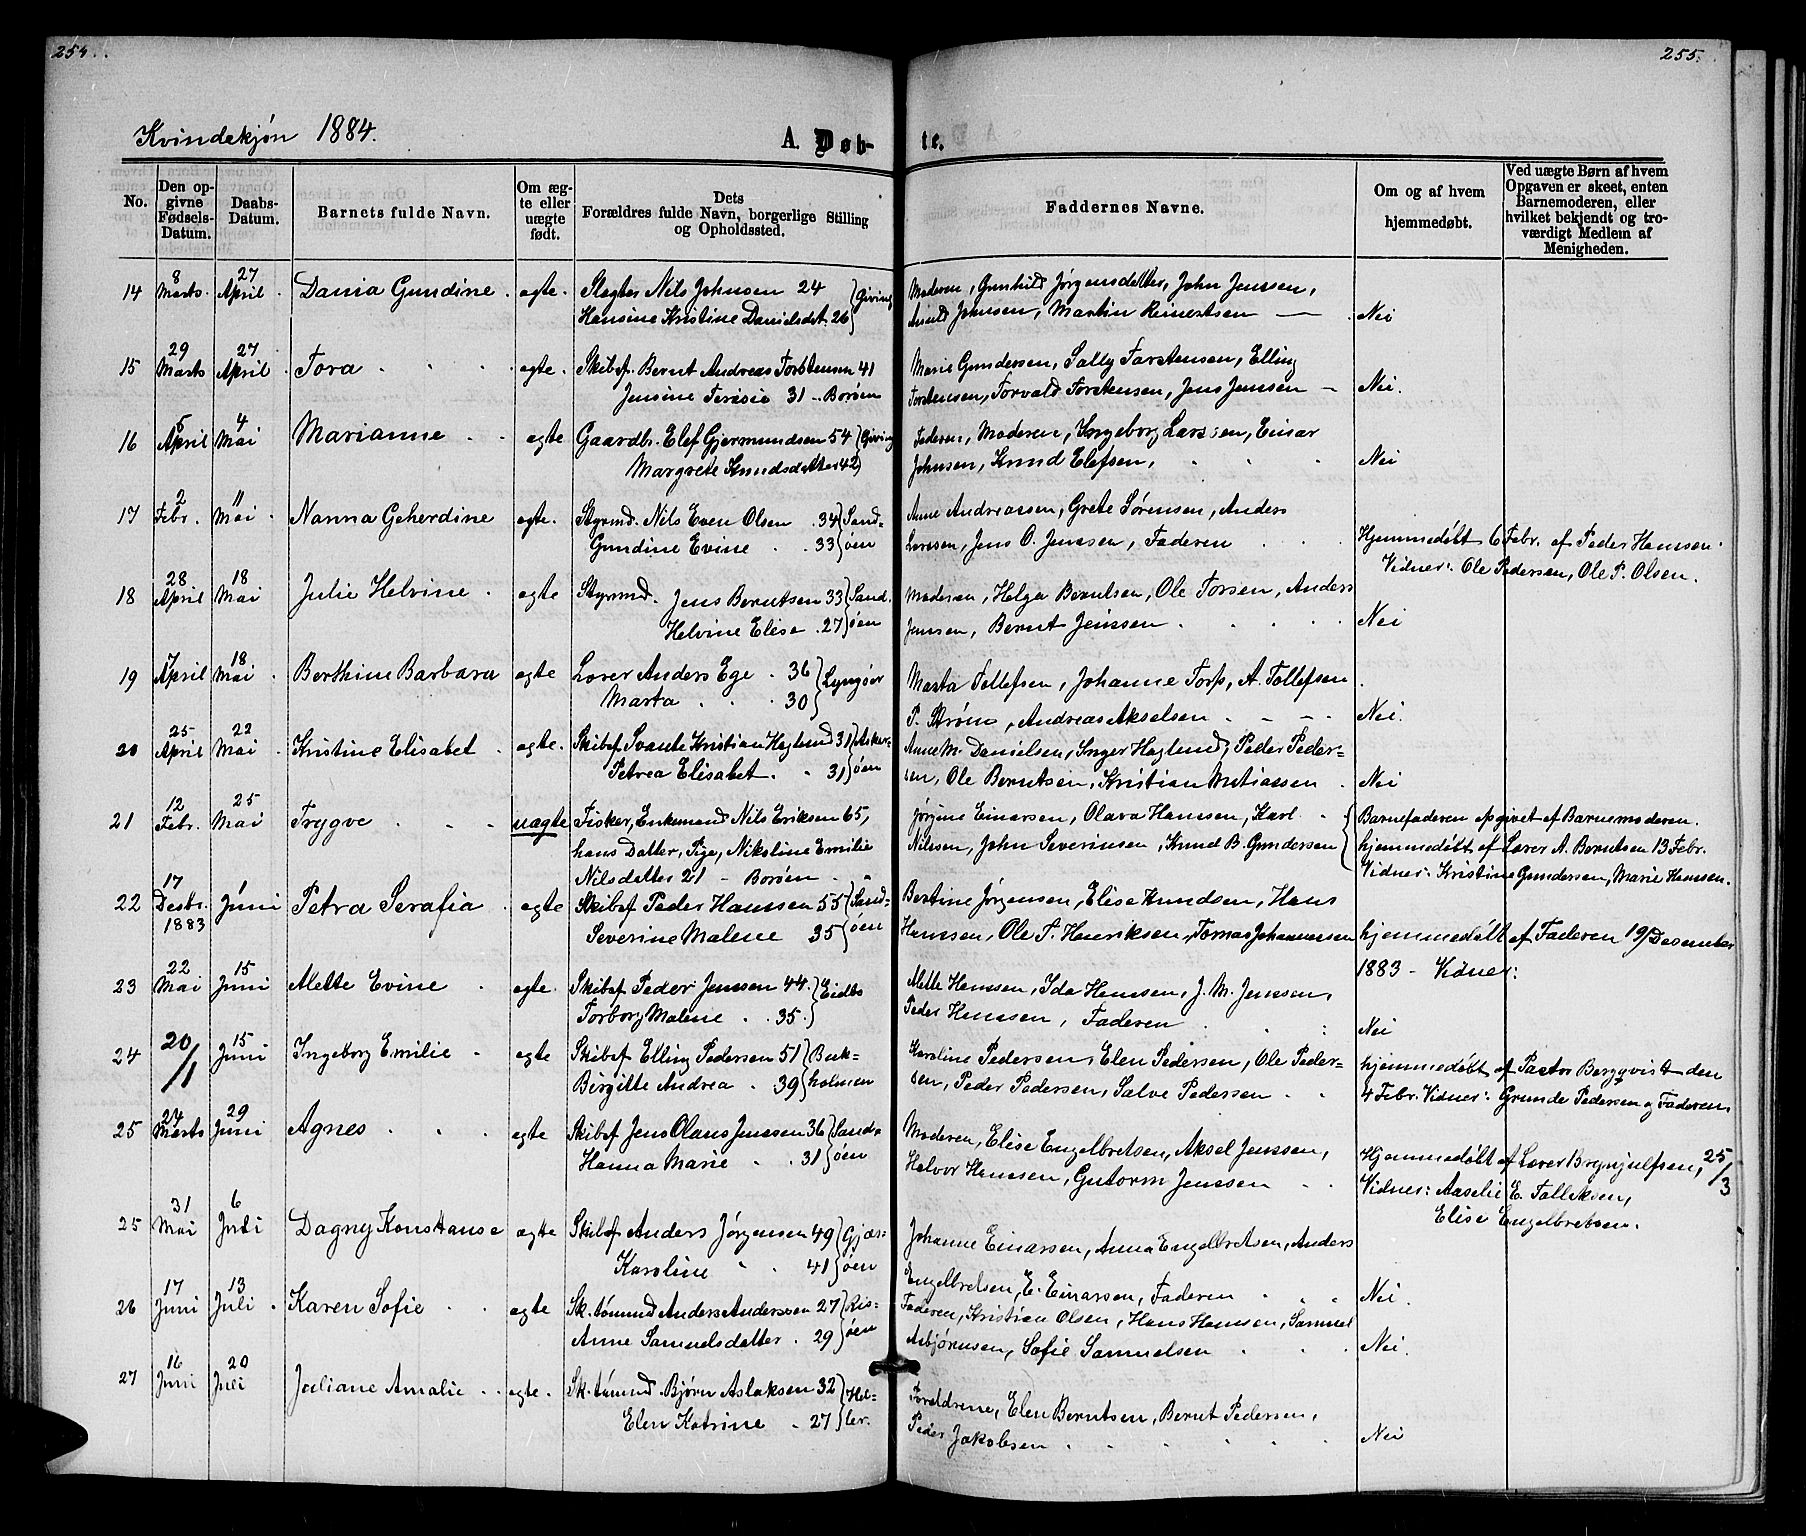 254.
255.
Kvindekjøn 1884.
A. Døb-
te.
No.
Den opgivne Fødsels-Datum.
Daabs-Datum.
Barnets fulde Navn.
Om ægte eller uægte født.
Dets Forældres fulde Navn, borgerlige Stilling og Opholdssted.
Faddernes Navne.
Om og af hvem hjemmedøbt.
Ved uægte Børn af hvem Opgaven er skeet, enten Barnemoderen, eller hvilket bekjendt og troværdigt Medlem af Menigheden.
14 8 Marts. 27 April Dania Gundine. ægte. Slagter Nils Johnsen 24 Giving
Hansine Kristine Danielsdat. 26
Moderen, Gunhild Jørgensdatter, John Jenssen,
Arild Johnsen, Martin Reinertsen — Nei
15 29 Marts 27 April Tora ægte. Skibsf. Bernt Andreas Torstensen 41
Jensine Terasie 31 - Borøen
Marie Gundersen, Sally Tarstensen, Elling
Torstensen, Torvald Torstensen, Jens Jenssen - Nei.
16 5 April 4 Mai Marianne ægte Gaardbr. Elef Gjermundsen 54 Giving
Margrete Knudsdatter 42
Faderen, Moderen, Ingeborg Larssen, Einar
Johnsen, Knud Elefsen, Nei
17 2 Febr. 11 Mai Nanna Geherdine ægte. Styrmd. Nils Even Olsen 34 Sand-
Gundine Evine 33 øen
Anne Andreassen, Grete Sørensen, Anders
Larssen, Jens O. Jenssen, Faderen
Hjemmedøbt 6 Febr. af Peder Hanssen
Vidner: Ole Pedersen, Ole P. Olsen.
18 28 April 18 Mai Julie Helvine ægte Styrmd. Jens Berntsen 33 Sand.
Helvine Elise 27 øen
Moderen, Helga Berntsen, Ole Torsen, Anders
Jenssen, Bernt Jenssen Nei
19 7 April 18 Mai Berthine Barbara ægte Lærer Anders Ege 36 Lyngøer
Marta 30
Marta Tellefsen, Johanne Torp, A. Tollefsen
P. Strøm, Andreas Akselsen Nei.
20 25 April 22 Mai Kristine Elisabet ægte. Skibsf Svante Kristian Haglund 31 Asker-
Petrea Elisabet 31 øen
Anne M. Danielsen, Inger Haglund, Peder Peder-
sen, Ole Berntsen, Kristian Matiassen Nei
21 12 Febr. 25 Mai Trygve uægte Fisker, Enkemand Nils Eriksen 65,
hans Datter, Pige, Nikoline Emilie
Nilsdatter 21 - Borøen
Jørgine Einarsen, Olava Hanssen, Karl
Nilssen, John Severinsen, Knud B. Gundersen
Barnefaderen opgivet af Barnemoderen.
hjemmedøbt af Lærer A. Berntsen 13 Febr.
Vidner: Kristine Gundersen, Marie Hanssen.
22 17 Desbr. 1883 Juni Petra Serafia ægte Skibsf Peder Hanssen 55 Sand-
Severine Malene 35 øen
Bertine Jørgensen, Elise Knudsen, Hans
Hanssen, Ole P. Henriksen, Tomas Johannessen
hjemmedøbt af Faderen 19/Desember
1883 - Vidner:
23 22 Mai 15 Juni Mette Evine ægte. Skibsf Peder Jenssen 44. Eidbo
Torborg Malene 35.
Mette Hanssen, Ida Hanssen, J. M. Jenssen,
Peder Hanssen, Faderen Nei
24 20/1 15 Juni Ingeborg Emilie ægte Skibsf Elling Pedersen 51 Buk-
Birgitte Andrea 39 holmen
Karoline Pedersen, Elen Pedersen, Ole Peder-
sen, Peder Pedersen, Salve Pedersen
hjemmedøbt af Pastor Bergqvist den
4 Febr. Vidner: Grunde Pedersen og Faderen,
25 24 Marts 29 Juni Agnes ægte Skibsf Jens Olaus Jenssen 36 Sand-
Hanna Marie 31 øen
Moderen, Elise Engelbretsen, Aksel Jenssen,
Halvor Hanssen, Gutorm Jenssen
Hjemmedøbt af Lærer Brynjulfsen, 25/3
Vidner: Aaselie E. Falleksen,
Elise Engelbretsen.
25 31 Mai 6 Juli Dagny Konstanse ægte Skibsf Anders Jørgensen 49 Gjæs-
Karoline 41 øen
Johanne Einarsen, Anna Engelbretsen, Anders
Engelbretsen, E. Einarssen, Faderen Nei.
26 17 Juni 13 Juli Karen Sofie ægte Sk.tømmd Anders Anderssen 27 Ris-
Anne Samuelsdatter 29 øen
Faderen, Kristian Olsen, Hans Hanssen, Samuel
Asbjørnsen, Sofie Samuelsen Nei.
27 16 Juni 20 Juli Juliane Amalie ægte. Sk.tømmd. Bjørn Aslaksen 32 Hol-
Elen Katrine 27 ter.
Foreldrene, Elen Berntsen, Bernt Pedersen,
Peder Jakobsen Nei